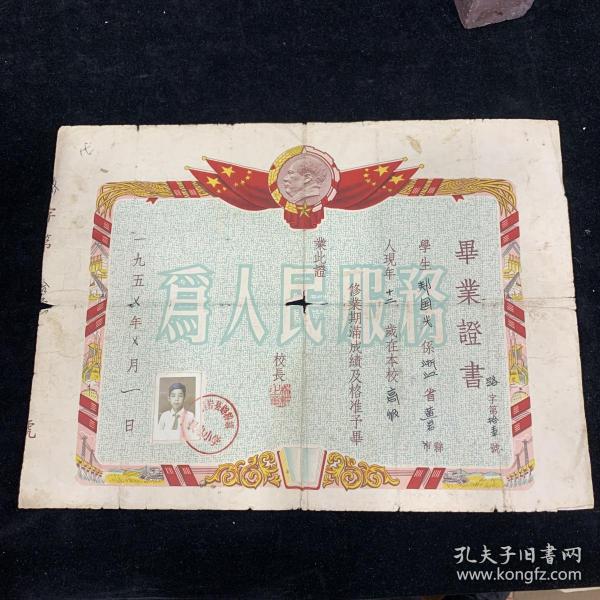 畢業證書
路字第拾壹號
學生郑國 係浙江省黄岩縣市
人現年十二歲在本校高級
修業期滿成績及格准予畢
業此證
校長
一九五 年 月一日
為人民服務
小學
字第
號
孔夫子旧书网
www.kongfz.com